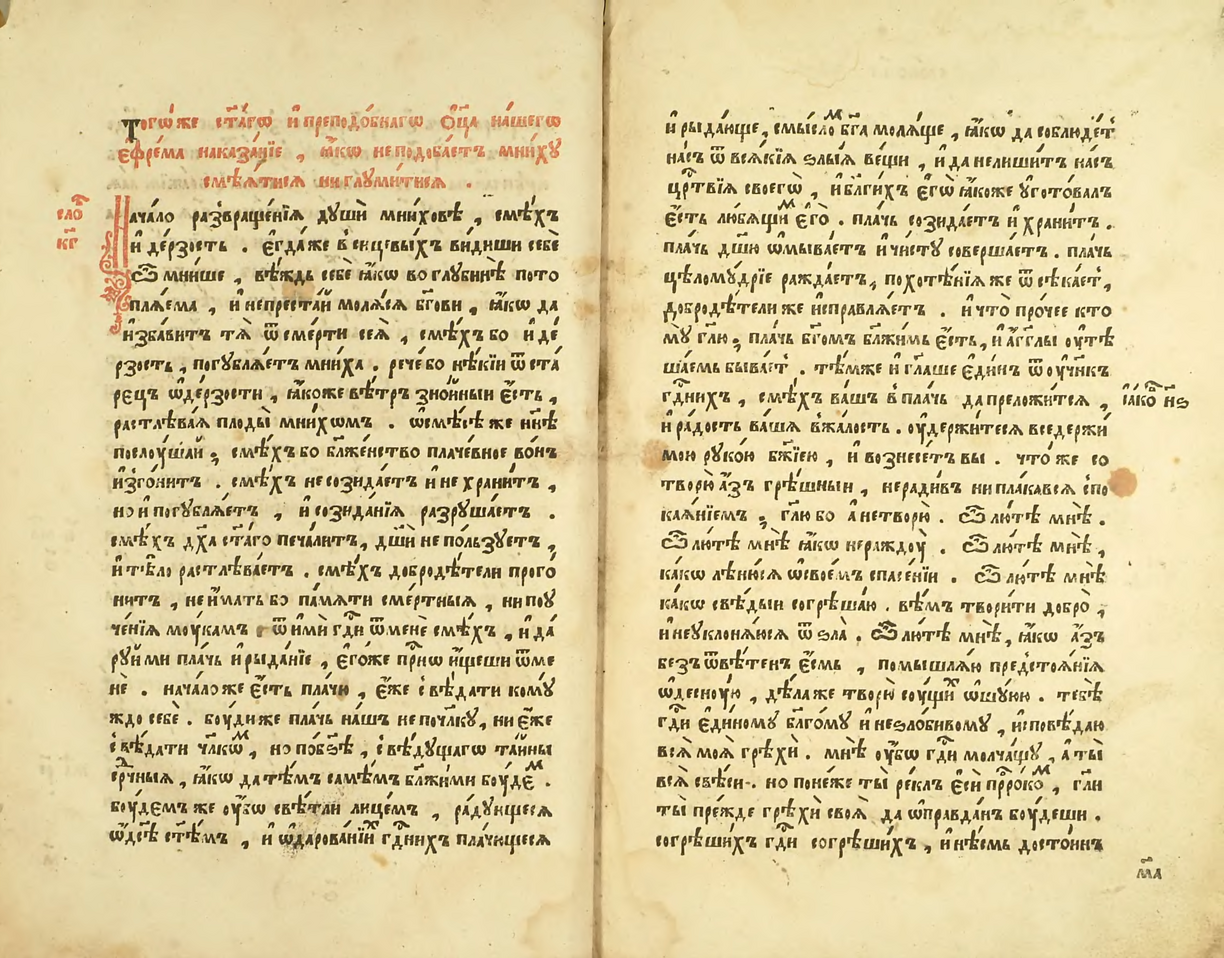 Тогѡ́же ст҃а́гѡ и҆ преподо́бнагѡ Ѻ҆ц҃а на́шегѡ
Є҆фре́ма наказа́нїе , ꙗ҆́кѡ неподоба́етъ мни́хꙋ
смѣѧ́тисѧ ни глꙋми́тисѧ .
сло҇
к҃г
Нача́ло развраще́нїѧ дꙋшѝ мни́ховѣ , смѣ́хъ
и҆ де́рзость . є҆гда́ же в҆ си́цевыхъ ви́диши себѐ
Ѽ мни́ше , вѣ́ждь себѐ ꙗ҆́кѡ во глꙋбинѣ̀ пото
плѧ́ема , и҆ непреста́й молѧ́сѧ бг҃ови , ꙗ҆́кѡ да
и҆зба́витъ тѧ̀ ѿ сме́рти сеѧ̀ , смѣ́хъ бо и҆ де́
рзость , погꙋблѧ́етъ мни́ха . рече́ бо нѣ́кїи ѿ ста́
рецъ ѡ҆де́рзости , ꙗ҆́коже вѣ́тръ зно́йныи є҆́сть ,
растлѣва́ѧ плоды̀ мни́хѡмъ . ѡ҆смѣ́сѣ же ны́нѣ
послꙋ́шай , смѣ́хъ бо бл҃же́нство плаче́вное во́нъ
и҆зго́нитъ . смѣ́хъ несозида́етъ и҆ не храни́тъ ,
но и҆ погꙋблѧ́етъ , и҆ созида́нїѧ разрꙋша́етъ .
смѣ́хъ дх҃а ст҃а́го печа́литъ , дш҃ѝ не по́льзꙋетъ ,
и҆ тѣ́ло растлѣва́етъ . смѣ́хъ добродѣ́тели прого́
нитъ , не и҆́мать бо па́мѧти сме́ртныѧ , ни поꙋ
че́нїѧ мо́ꙋкамъ . ѿ и҆мѝ гдⷭ҇и ѿ менѐ смѣ́хъ , и҆ да́
рꙋй ми пла́чь и҆ рыда́нїе , є҆го́же прⷭ҇нѡ и҆́щеши ѿ ме
нѐ . нача́ло же є҆́сть пла́чю , є҆́же свѣ́дати комꙋ́
ждо себѐ . бо́ꙋди же пла́чь на́шъ не по чл҃кꙋ , ни є҆́же
свѣ́дати чл҃кѡⷨ , но по бз҃ѣ , свѣ́дꙋщагѡ та́йны
срⷣчныѧ , ꙗ҆́кѡ да тѣ́мъ самѣ́мъ бл҃жими бо́ꙋдеⷨ .
бо́ꙋдемъ же о҆у҆́бѡ свѣ́тли лице́мъ , ра́дꙋющесѧ
ѡ҆дс҃ѣ ст҃ѣмъ , и҆ ѡ҆дарова́нїиⷯ гдⷭ҇нихъ пла́чющесѧ
и҆ рыда́юще , смы́слоⷨ бг҃а молѧ́ще , ꙗ҆́кѡ да соблюде́тъ
на́съ ѿ всѧ́кїѧ ѕлы́ѧ ве́щи , и҆ да не лиши́тъ на́съ
црⷭ҇твїѧ своегѡ̀ , и҆ бл҃ги́хъ є҆гѡ̀ ꙗ҆́коже ᲂу҆гото́валъ
є҆́сть лю́бѧщиⷨ є҆го̀ . пла́чь созида́етъ и҆ храни́тъ .
пла́чь дш҃и ѡ҆мыва́етъ и҆ чи́стꙋ соверша́етъ . пла́чь
цѣломꙋ́дрїе ражда́етъ , похотѣ́нїѧ же ѿсѣка́етъ ,
добродѣ́тели же и҆справлѧ́етъ . и҆ что̀ про́чее кто
мꙋ̀ гл҃ю , пла́чь бг҃омъ бл҃жи́мь є҆́сть , и҆ а҆́гг҃лы о҆у҆тѣ
ша́емь быва́етъ . тѣ́мже и҆ гл҃аше є҆ди́нъ ѿ о҆у҆чн҃къ
гдⷭ҇нихъ , смѣ́хъ ва́шъ в҆ пла́чь да прело́житсѧ ,
и҆ ра́дость ва́шѧ в҆ жа́лость . о҆у҆держи́тесѧ вседержи́
мою рꙋко́ю бж҃їею , и҆ вознесе́тъ вы . что́ же со
творю̀ а҆́зъ грѣ́шныи , неради́въ ни пла́кавсѧ спо
каѧ́нїемъ , гл҃ю бо а҆ не творю̀ . Ѽ лю́тѣ мнѣ̀ .
Ѽ лю́тѣ мнѣ̀ ꙗ҆́кѡ нераждо́ꙋ . Ѽ лю́тѣ мнѣ̀ ,
ка́кѡ лѣню́сѧ ѡ҆ свое́мъ спасе́нїи . Ѽ лю́тѣ мнѣ̀
ка́кѡ свѣ́дыи согрѣша́ю . вѣ́мъ твори́ти добро̀ ,
и҆ не ᲂу҆клонѧ́юсѧ ѿ ѕла̀ . Ѽ лю́тѣ мнѣ̀ , ꙗ҆́кѡ а҆́зъ
безъѿвѣ́тенъ є҆́смь , помышлѧ́ю предстоѧ́нїѧ
ѡ҆десно́ꙋю , дѣла́ же творю̀ со́ꙋщиⷯ ѡ҆шꙋ́юю . тебѣ̀
гдⷭ҇и є҆ди́номꙋ бл҃го́мꙋ и҆ неѕло́бивомꙋ , и҆сповѣ́даю
всѧ̀ моѧ̀ грѣхѝ . мнѣ̀ о҆у҆́бѡ гдⷭ҇и молча́щꙋ , а҆ ты̀
всѧ̀ свѣ́си . но поне́же ты̀ ре́клъ є҆сѝ прⷪ҇ро́коⷨ , гл҃и
ты̀ пре́жде грѣхѝ своѧ̀ да ѡ҆правда́нъ бо́ꙋдеши .
согрѣши́хъ гдⷭ҇и согрѣши́хъ , и҆ нѣ́смь досто́инъ
м҃а